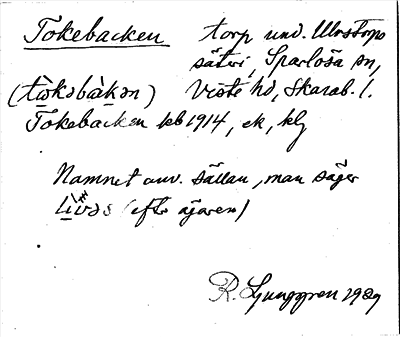 Tokebacken torp und. Ulvstorps
säteri, Sparlösa sn,
(tωkəbàkən) Viste hd, Skarab. l.
Tokebacken kb 1914, ek, klg
Namnet anv. sällan, man säger
(efter ägaren)
R. Ljunggren 1929